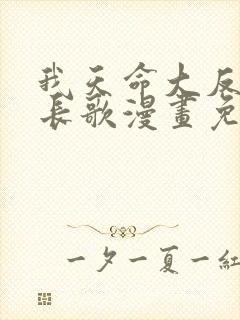 我天命大反
长歌漫畫免
一夕一夏一紅